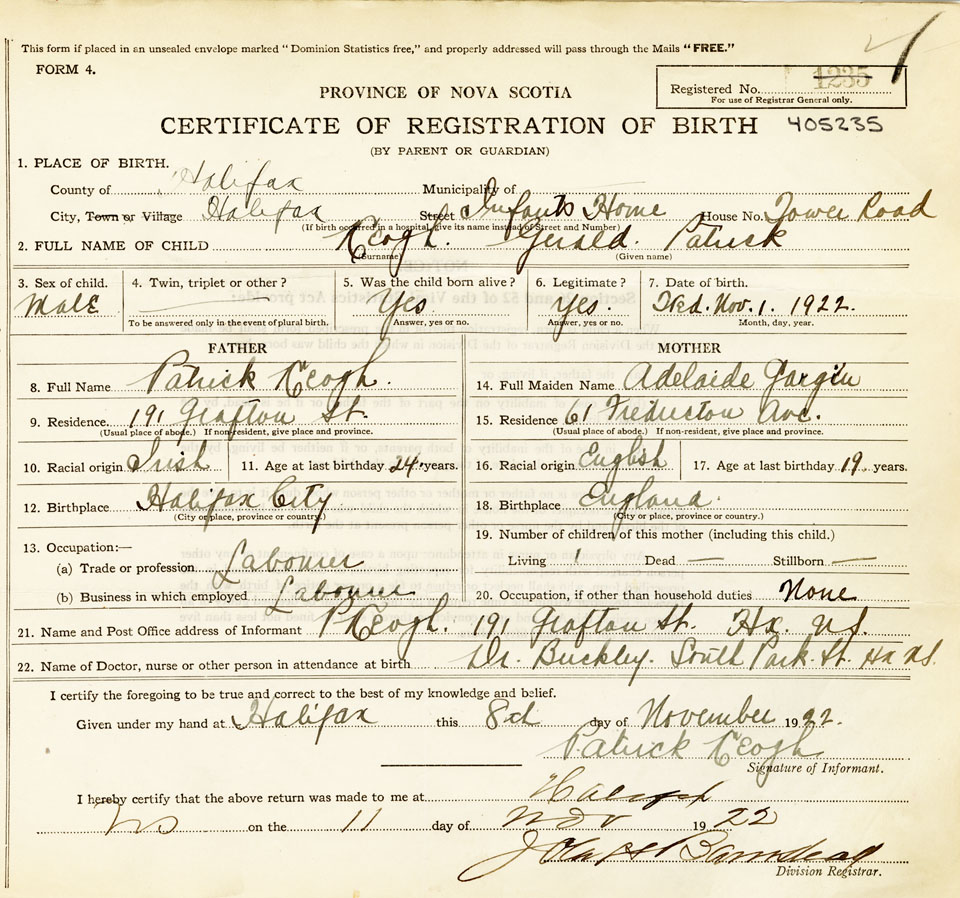 This form if placed in an unsealed envelope marked "Dominion Statistics free," and properly addressed will pass through the Mails "FREE."
FORM 4.
Registered No. 1235
For use of Registrar General only.
PROVINCE OF NOVA SCOTIA
CERTIFICATE OF REGISTRATION OF BIRTH 405235
(BY PARENT OR GUARDIAN)
1. PLACE OF BIRTH.
County of Halifax Municipality of
City, Town or Village Halifax Street Infants Home House No. Tower Road
(If birth occurred in a hospital, give its name instead of Street and Number)
2. FULL NAME OF CHILD Keogh. Gerald. Patrick
(Surname) (Given name)
3. Sex of child. 4. Twin, triplet or other? 5. Was the child born alive? 6. Legitimate? 7. Date of birth.
Male Yes Yes. Wed. Nov. 1. 1922.
To be answered only in the event of plural birth. Answer, yes or no. Answer, yes or no. Month, day, year.
FATHER
8. Full Name Patrick Keogh.
9. Residence. 191 Grafton St.
(Usual place of abode.) If non-resident, give place and province.
10. Racial origin Irish 11. Age at last birthday 24 years.
12. Birthplace Halifax City
(City or place, province or country.)
13. Occupation:—
(a) Trade or profession Labourer
(b) Business in which employed Labourer
MOTHER
14. Full Maiden Name Adelaide
15. Residence 61 Ave.
(Usual place of abode.) If non-resident, give place and province.
16. Racial origin English 17. Age at last birthday 19 years.
18. Birthplace England.
(City or place, province or country.)
19. Number of children of this mother (including this child.)
Living 1 Dead — Stillborn —
20. Occupation, if other than household duties None
21. Name and Post Office address of Informant P Keogh. 191 Grafton St. Hx. NS.
22. Name of Doctor, nurse or other person in attendance at birth Dr. Buckley. South Park. St. Hx NS.
I certify the foregoing to be true and correct to the best of my knowledge and belief.
Given under my hand at Halifax this 8th day of November 1922.
Patrick Keogh
Signature of Informant.
I hereby certify that the above return was made to me at Halifax
NS on the 11 day of Nov 1922
Division Registrar.